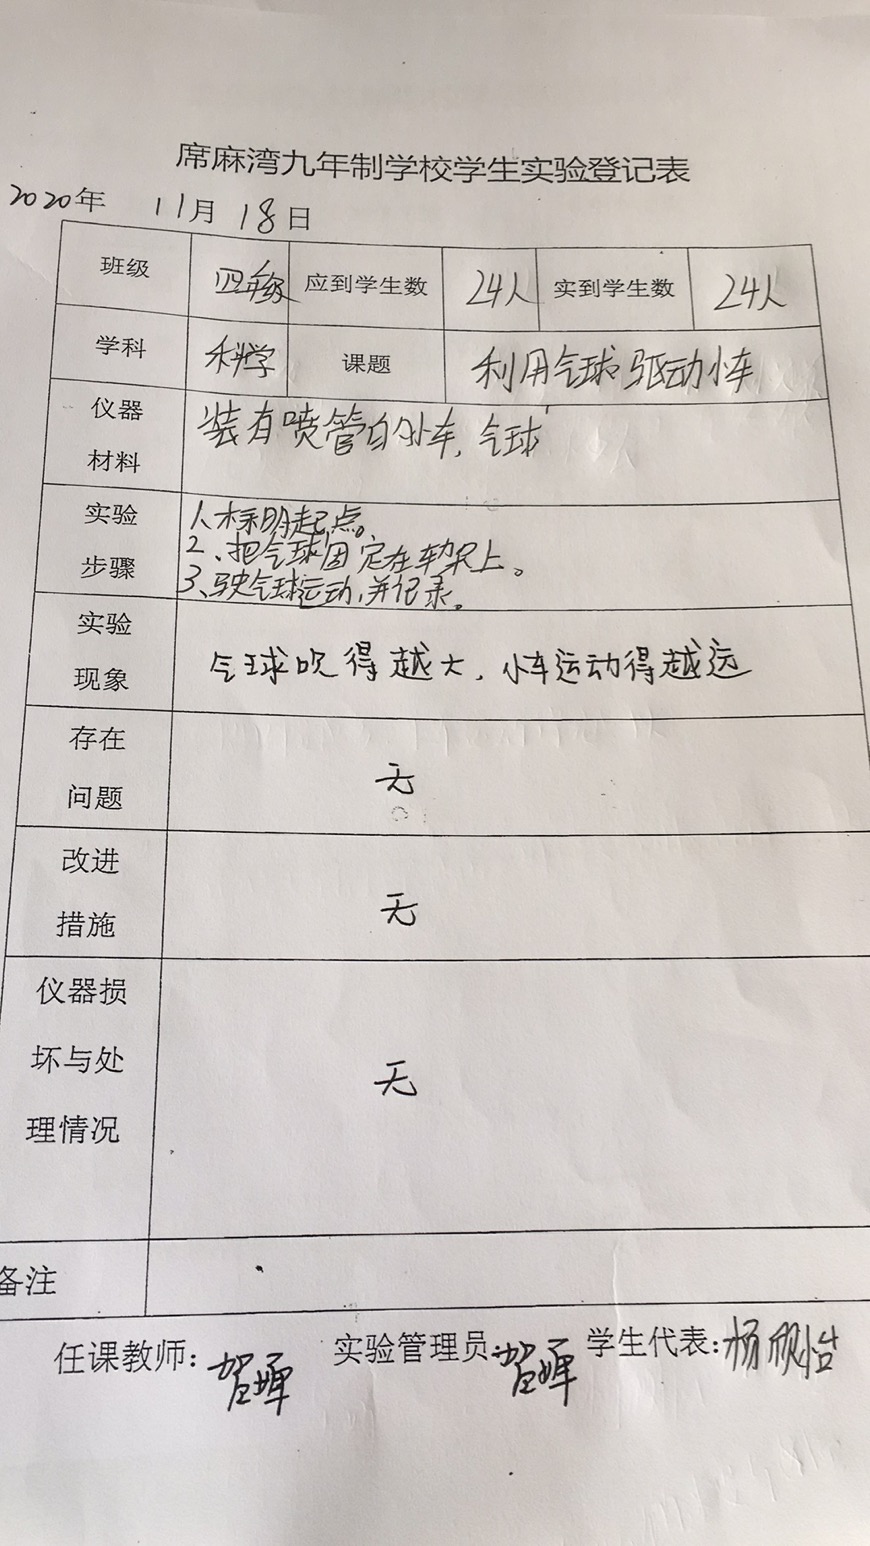 席麻湾九年制学校学生实验登记表
2020年 11月 18日
班级 四年级 应到学生数 24人 实到学生数 24人
学科 科学 课题 利用气球驱动小车
仪器 装有喷管的小车,气球
材料
实验 1、标明起点。
2、把气球固定在车架上。
步骤 3、驶气球运动,并记录。
实验
现象 气球吹得越大,小车运动得越远
存在
问题 无
改进
措施 无
仪器损
坏与处 无
理情况
备注
任课教师: 实验管理员: 学生代表:杨欣怡